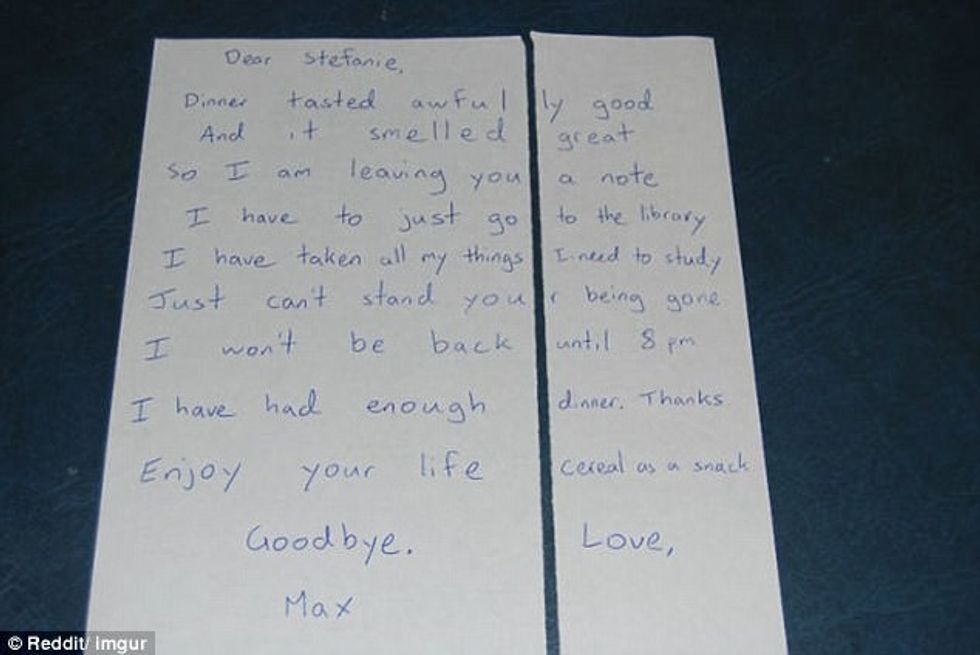 Dear Stefanie,
Dinner tasted awful ly good
And it smelled great
So I am leaving you a note
I have to just go to the library
I have taken all my things I need to study
Just can't stand you r being gone
I won't be back until 8 pm
I have had enough dinner. Thanks
Enjoy your life cereal as a snack
Goodbye. Love,
Max
© Reddit/ Imgur